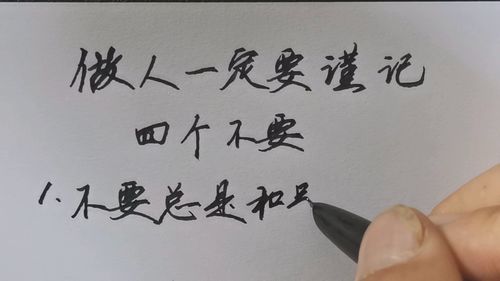 做人一定要谨记
四个不要
1.不要总是和